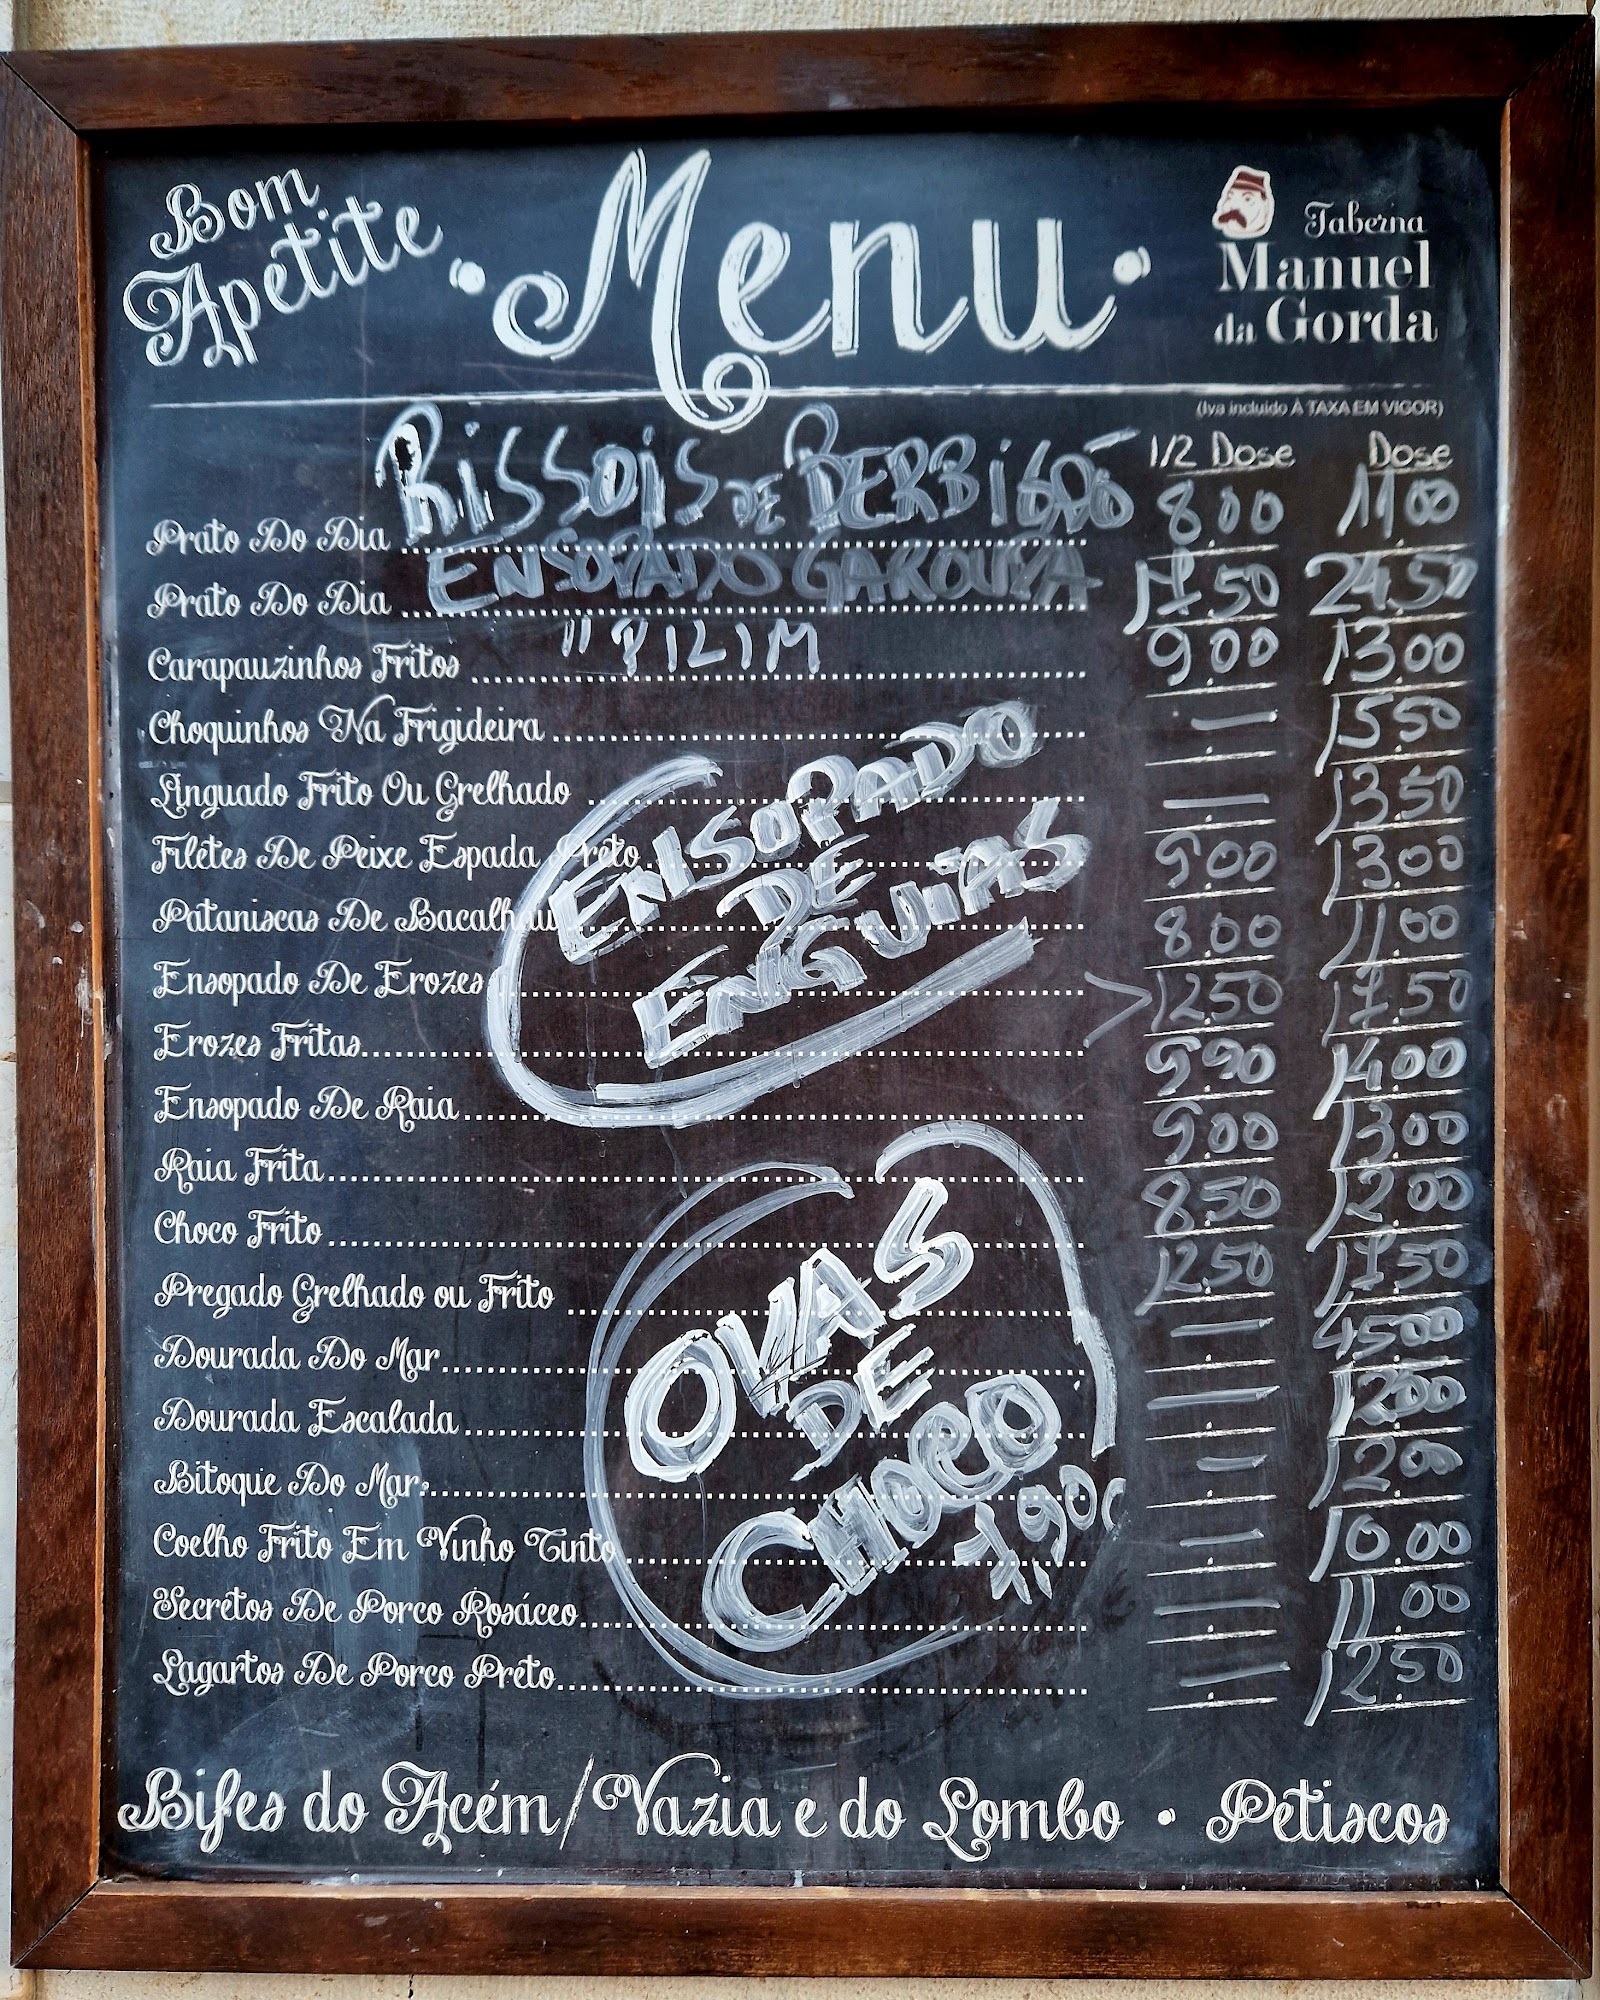 Bom
Apetite
• Menu •
Taberna
Manuel
da Gorda
(Iva incluido À TAXA EM VIGOR)
1/2 Dose Dose
RISSOIS DE BERBIGÃO
Prato Do Dia 8.00 11.00
ENSOPADO GAROUPA
Prato Do Dia 17.50 24.50
" PILIM
Carapauzinhos Fritos 9.00 13.00
Choquinhos Na Frigideira — 15.50
Linguado Frito Ou Grelhado — 13.50
Filetes De Peixe Espada Preto 9.00 13.00
Pataniscas De Bacalhau 8.00 11.00
Ensopado De Erozes > 12.50 17.50
Erozes Fritas 9.90 14.00
Ensopado De Raia 9.00 13.00
Raia Frita 8.50 12.00
Choco Frito 12.50 17.50
Pregado Grelhado ou Frito — 45.00
Dourada Do Mar — 12.00
Dourada Escalada — 12.00
Bitoque Do Mar — 10.00
Coelho Frito Em Vinho Tinto — 11.00
Secretos De Porco Rosáceo — 12.50
Lagartos De Porco Preto
ENSOPADO
DE
ENGUIAS
OVAS
DE
CHOCO
7,90€
Bifes do Acém/Vazia e do Lombo • Petiscos